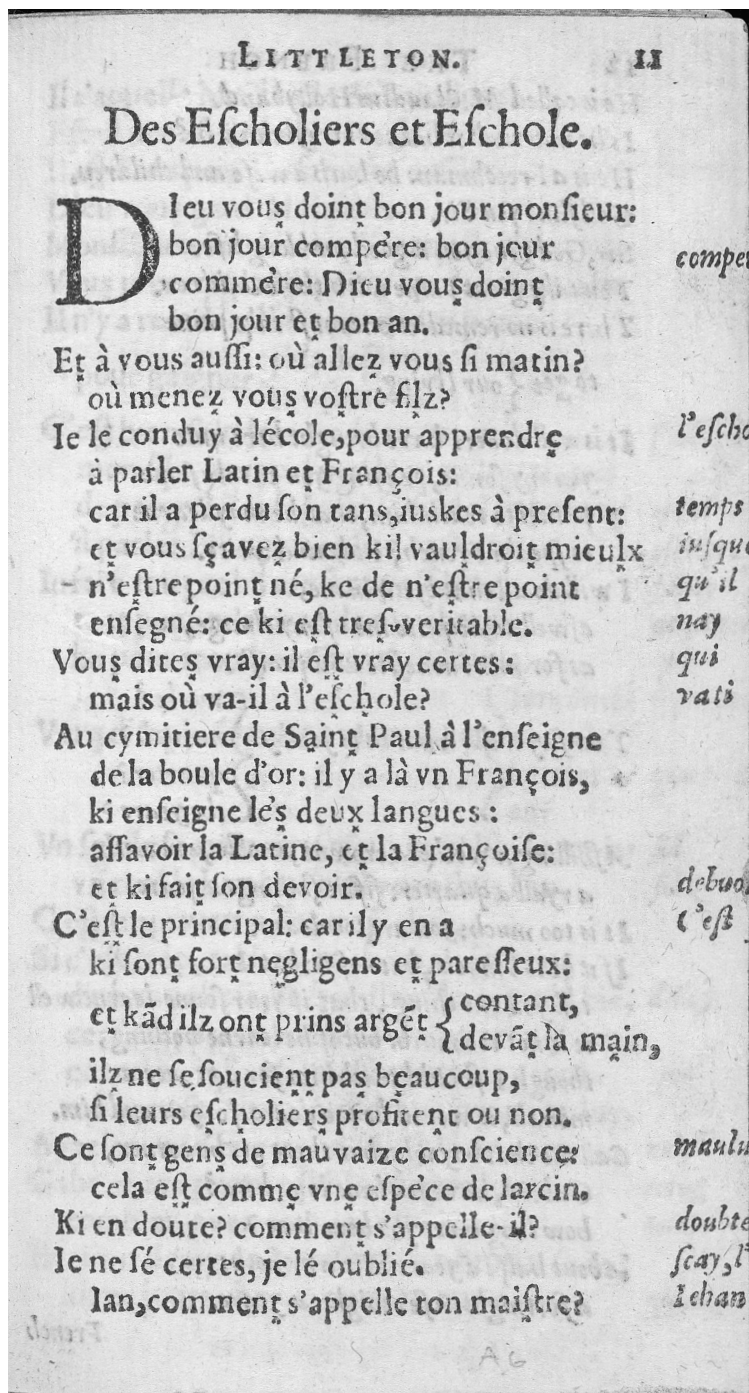 LITTLETON. 11
Des Eſcholiers et Eſchole.
DIeu vous̩ doint̩ bon jour monſieur:
bon jour compère: bon jour compe
commère: Dieu vous̩ doint̩
bon jour et̩ bon an.
Et̩ à vous auſſi: où allez̩ vous ſi matin?
où menez̩ vous̩ voſ̩tre fil̩z?
Ie le conduy à lécole, pour apprendrę l'eſcho
à parler Latin et̩ François:
car il a perdu ſon tans, iuskes à preſent: temps
et̩ vous ſçavez̩ bien kil vaul̩droit̩ mieul̩x iuſque
n'eſ̩tre point̩ né, ke de n'eſ̩tre point qu'il
enſegné: ce ki eſ̩t treſ-veritable. nay
Vous̩ dites̩ vray: il eſ̩t vray certes: qui
mais où va-il à l'eſ̩ch̩ole? vati
Au cymitiere de Sain̩t̩ Paul à l'enſeigne
de la boule d'or: il y a là vn François,
ki enſeigne lés̩ deux̩ langues:
aſſavoir la Latine, et̩ la Françoiſe:
et̩ ki fait̩ ſon devoir. debuo
C'eſ̩t̩ le principal: car il y en a C'eſt
ki ſont̩ fort̩ nęgligens et̩ pareſſeux:
et̩ kãd ilz ont̩ prins argẽt̩ { contant,
devãt̩ la main,
ilz̩ ne ſę ſoucien̩t̩ pas̩ bęaucoup,
ſi leurs eſ̩ch̩oliers̩ profiten̩t ou non.
Ce ſont̩ gens̩ de mauvaize conſcience: maulu
cela eſ̩t̩ commę vnę eſpéce de larcin.
Ki en doute? comment̩ s'appelle-il? doubte
Ie ne ſé certes, je lé oublié. ſcay, l'
Ian, comment̩ s'appelle ton maiſ̩tre? Iehan
A6